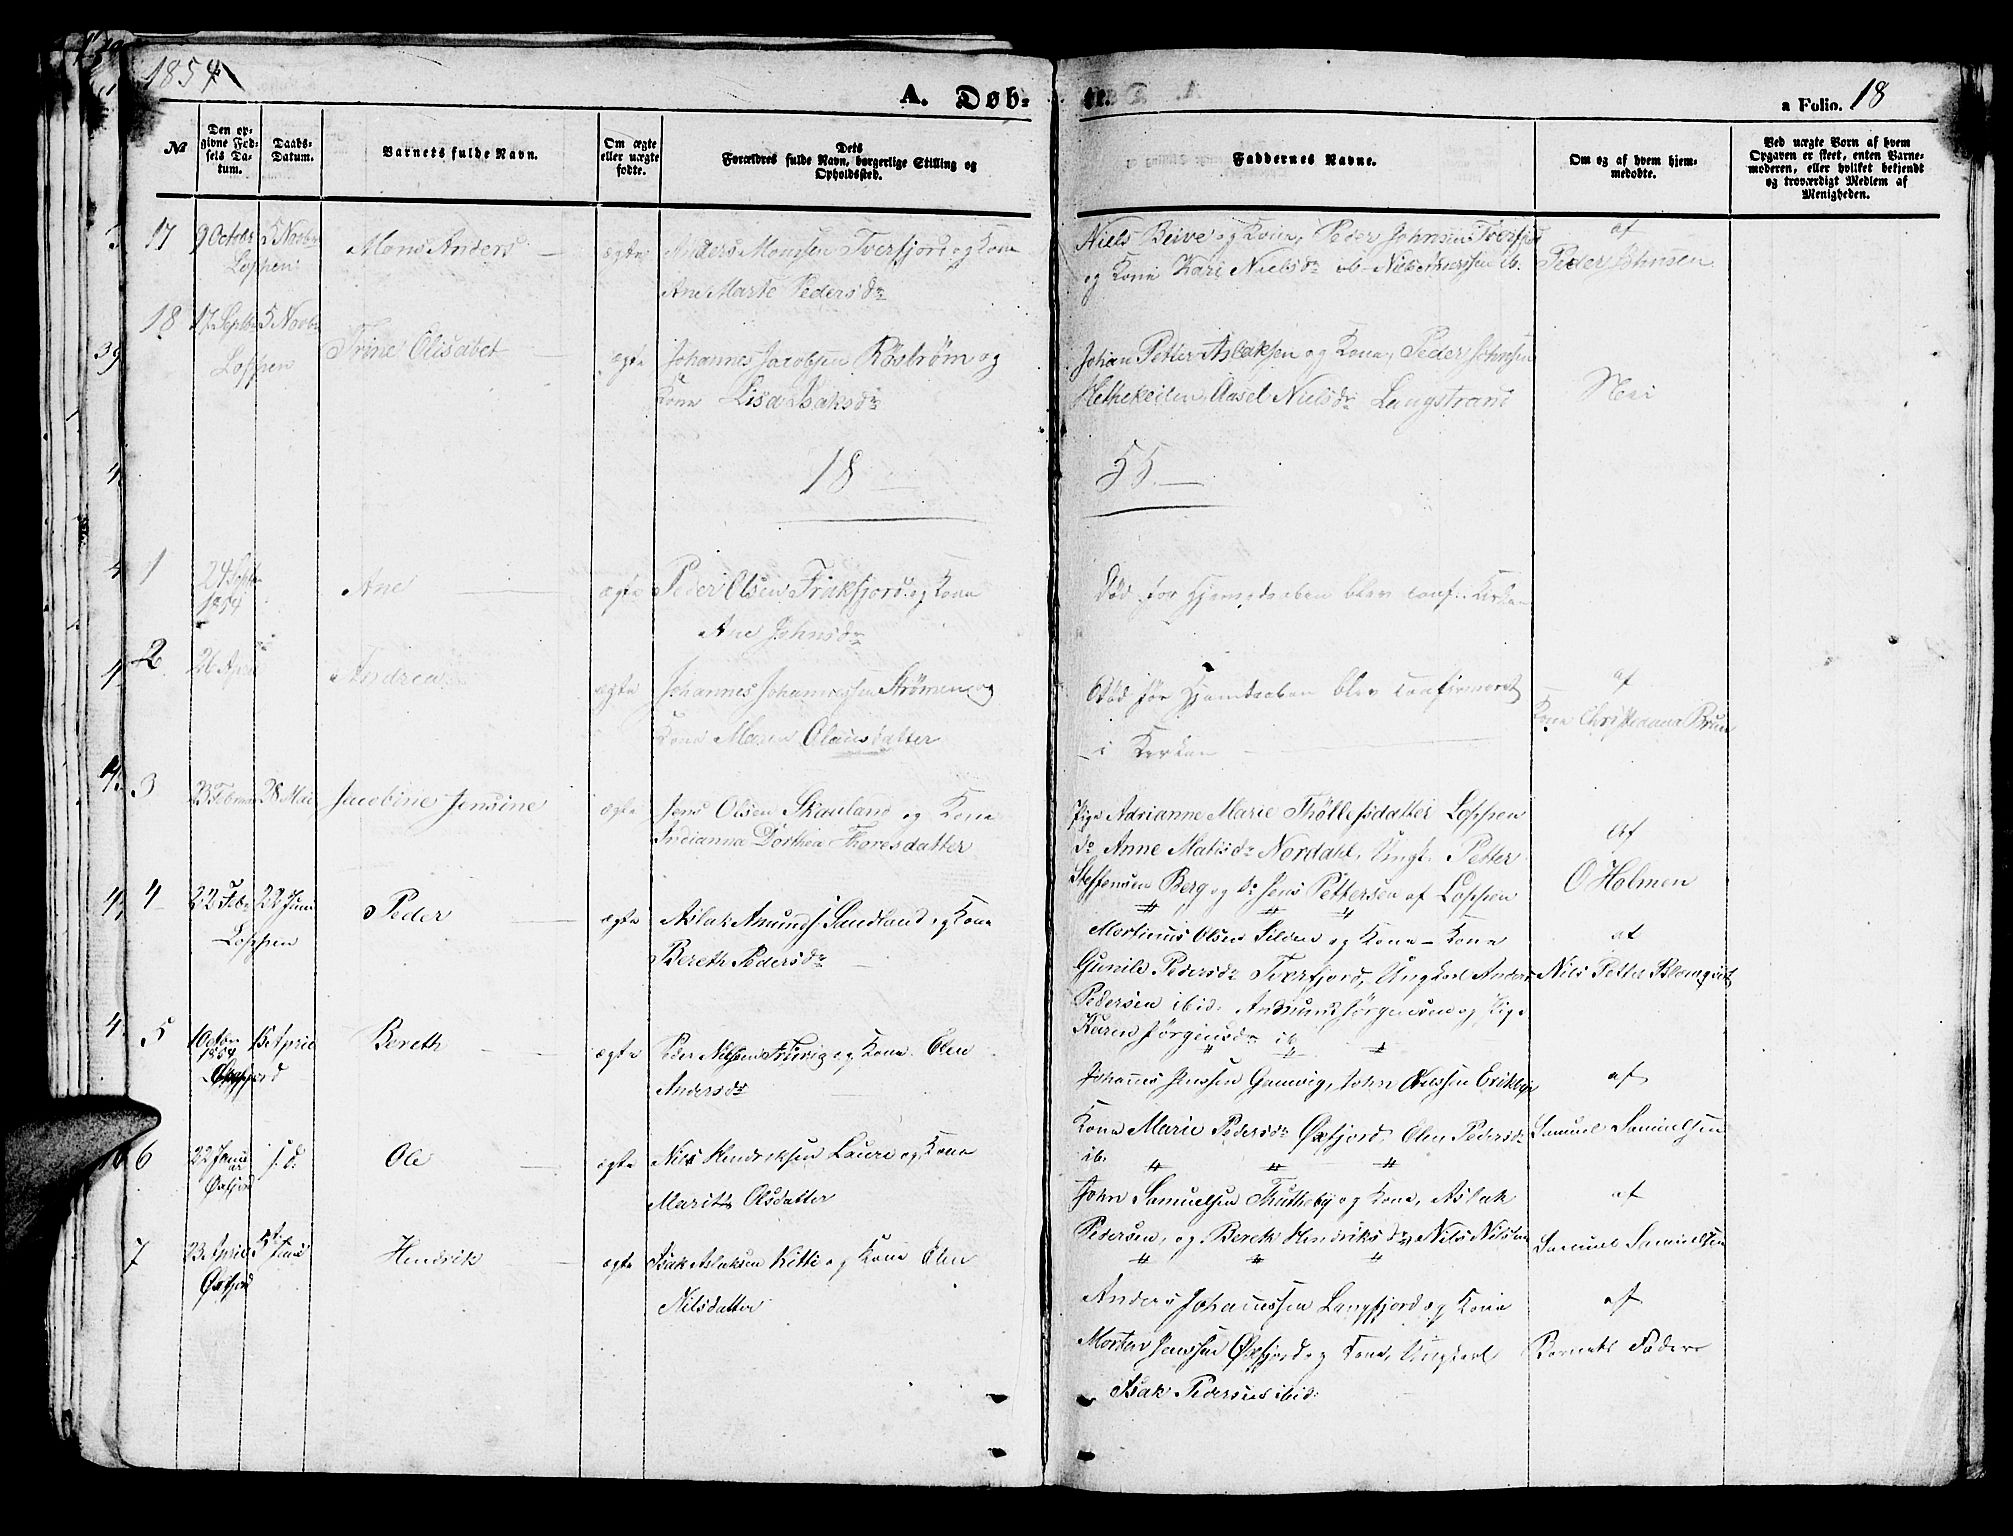 1854
A. Døbte.
a Folio. 18
No
Den opgivne Fødsels Datum.
Daabs-Datum.
Barnets fulde Navn.
Om ægte eller uægte fødte.
Dets Forældres fulde Navn, borgerlige Stilling og Opholdssted.
Faddernes Navne.
Om og af hvem hjemmedøbte.
Ved uægte Børn af hvem Opgaven er skeet, enten Barnemoderen, eller hvilket bekjendt og troværdigt Medlem af Menigheden.
17 9 Octobr 5 Novbr Mons Anders ægte Anders Monsen Tverfjord og Kone
Loppen
Ane Marte Pedersdr
Niels Beive og Kone, Peder Johnsen Tverfjord
og Kone Kari Nielsdr ib.
af
Peder Johnsen
18 17 Septbr 5 Novbr
Loppen
Trine Elisabet ægte Johannes Jacobsen Røstrøm og
Kone Lisa Isaksdr
Johan Petter Aslaksen og Kone, Peder Johnsen
Aasel Nielsdr Langstrand
Nei
18
55
1 24 Septbr
1854
Ane ægte Peder Olsen Frakfjord og Kone
Ane Johnsdr
Død før Hjemdaaben blev conf. i Kirken
2 26 April Andrea ægte Johannes Johannessen Strømen og
Kone Maren Olausdatter
Død før Hjemdaaben blev confirmeret
i Kirken
af
Kone Christiana Bruun
3 23 Februar 28 Mai Jacobine Jensine ægte Jens Olsen Skavland og Kone
Indianna Dorthea Thoresdatter
Pige Adrianne Marie Thøllefsdatter Loppen
do Anne Matisdr Nordahl, Ungk. Petter
Steffensen Berg og do Jens Pettersen af Loppen
af
O Holmen
4 22 Febr 22 Juni
Loppen
Peder ægte Aslak Amunds. Sandland og Kone
Bereth Pedersdr
Mortinus Olsen Silden og Kone – Kone
Gunild Pedersdr Tverfjord, Ungkarl Anders
Pedersen ibid. Amund Jørgensen og Pige
Karen Jørgensdr ib
af
Nils Petter Blomqvist
5 1 Octbr
1854
15 April
Øxfjord
Bereth ægte Peder Nilsen og Kone Elen
Andersdr
Johannes Jenssen Gamvig, John Nilssen
Kone Marie Pedersdr Øxfjord, Elen Pedersdr
ib.
af
Samuel Samuelsen
6 22 Januar s. d.
Øxfjord
Ole ægte Nils Hendriksen Lauri og Kone
Marith Olsdatter
John Samuelsen og Kone, Aslak
Pedersen, og Bereth Hendriksdr, Nils Nilsen
af
Samuel Samuelsen
7 23 April Juni
Øxfjord
Hendrik ægte Isak Aslaksen Kitti og Kone Elen
Nilsdatter
Anders Johannessen Langfjord og Kone
Morten Jenssen Øxfjord og Kone, Ungkarl
Isak Pedersen ibid.
af
Barnets Fader